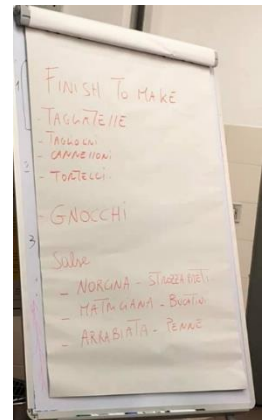 FINISH TO MAKE
1
TAGGATELLE
- TAGLOLNI
- CANNELLONI
2
- TORTELLI
- GNOCCHI
3
Salse
- NORCINA - STROZZAPRETI
- MATRICIANA - BUCATINI
- ARRABIATA - PENNE